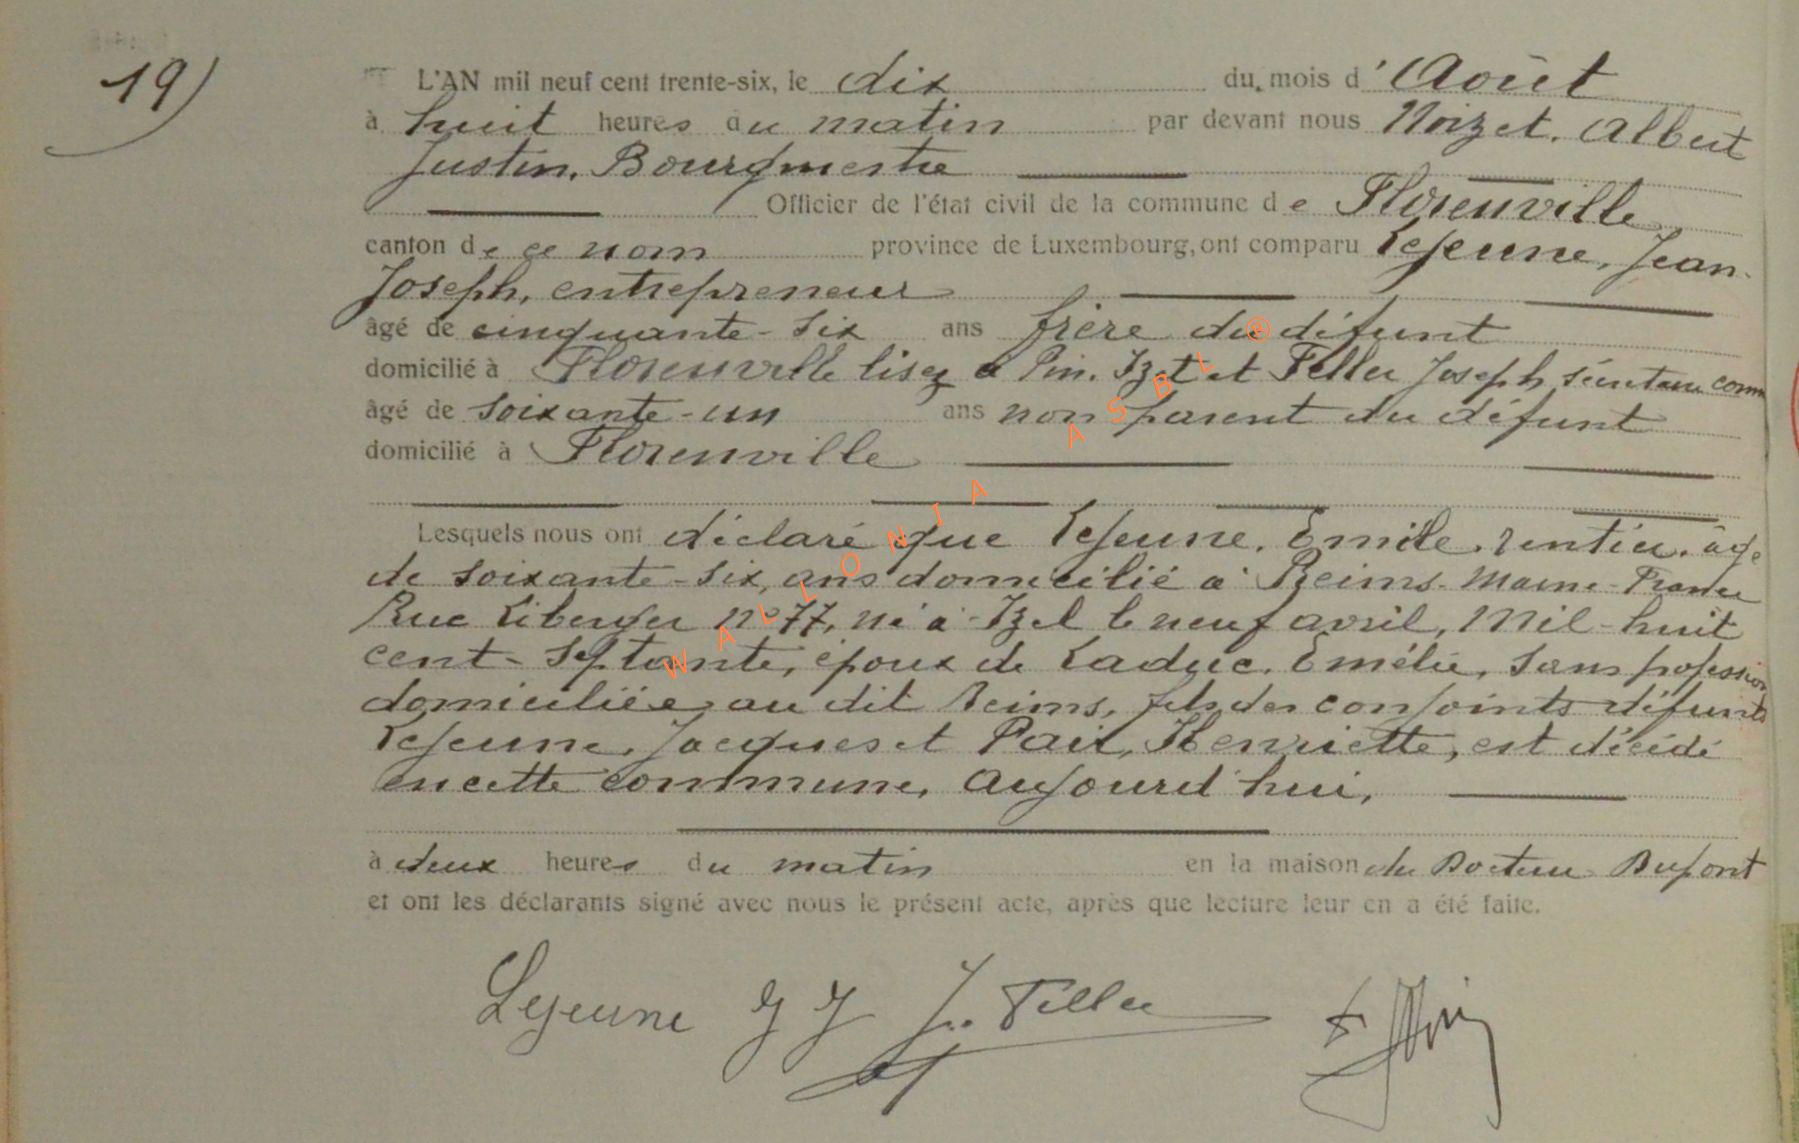 19)
L'AN mil neuf cent trente-six, le dix du mois d'Août
à huit heures du matin par devant nous Noizet. Albert
Justin. Bourgmestre
Officier de l'état civil de la commune de Florenville
canton de ce nom province de Luxembourg, ont comparu Lejeune, Jean-
Joseph, entrepreneur
âgé de cinquante-six ans frère du défunt
domicilié à Florenville lisez à Pin. Izel et Feller Joseph, secrétaire comm
âgé de soixante-un ans non parent du défunt
domicilié à Florenville
Lesquels nous ont déclaré que Lejeune. Emile. rentier. âgé
de soixante-six, ans domicilié à Reims. Marne-France
Rue Libergier n° 77, né à Izel le neuf avril, Mil-huit
cent-septante, époux de Laduc. Emélie, sans profession
domiciliée au dit Reims, fils des conjoints défunts
Lejeune, Jacques et Pair, Henriette, est décédé
en cette commune, aujourd'hui,
à deux heures du matin en la maison du Docteur Dupont
et ont les déclarants signé avec nous le présent acte, après que lecture leur en a été faite.
Lejeune J J J. Feller
WALLONIA ASBL ®